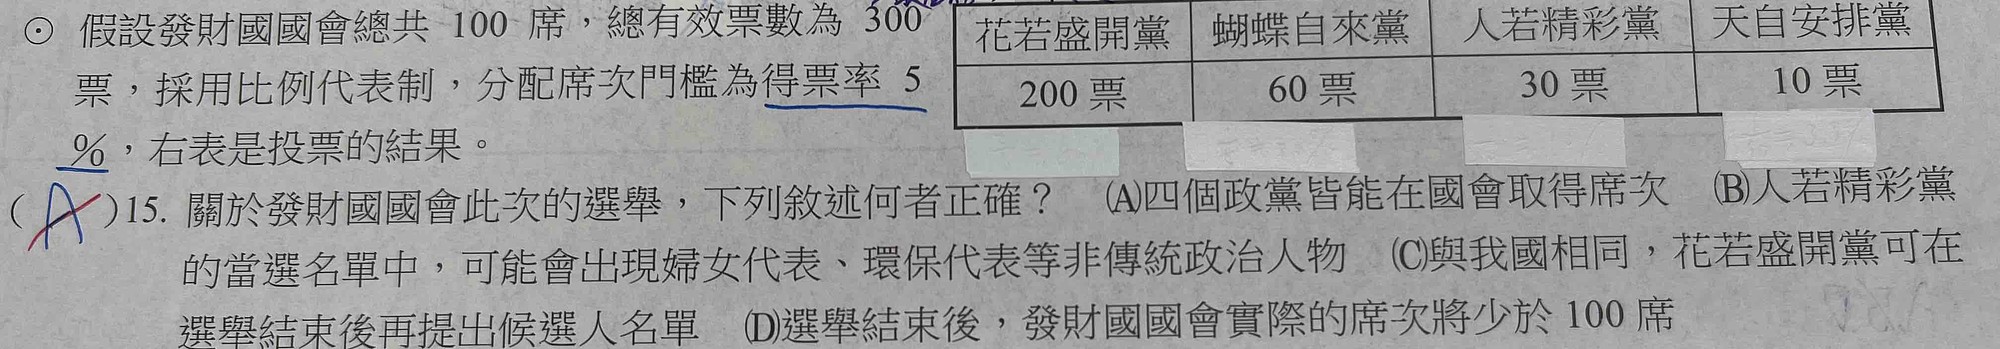 ⊙ 假設發財國國會總共 100 席，總有效票數為 300
票，採用比例代表制，分配席次門檻為得票率 5
%，右表是投票的結果。
花若盛開黨 蝴蝶自來黨 人若精彩黨 天自安排黨
200 票 60 票 30 票 10 票
( A )15. 關於發財國國會此次的選舉，下列敘述何者正確？ (A)四個政黨皆能在國會取得席次 (B)人若精彩黨
的當選名單中，可能會出現婦女代表、環保代表等非傳統政治人物 (C)與我國相同，花若盛開黨可在
選舉結束後再提出候選人名單 (D)選舉結束後，發財國國會實際的席次將少於 100 席